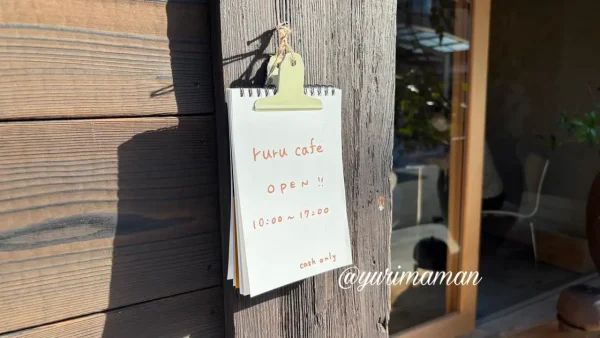 ruru cafe
OPEN !!
10:00~17:00
cash only
@yurimaman